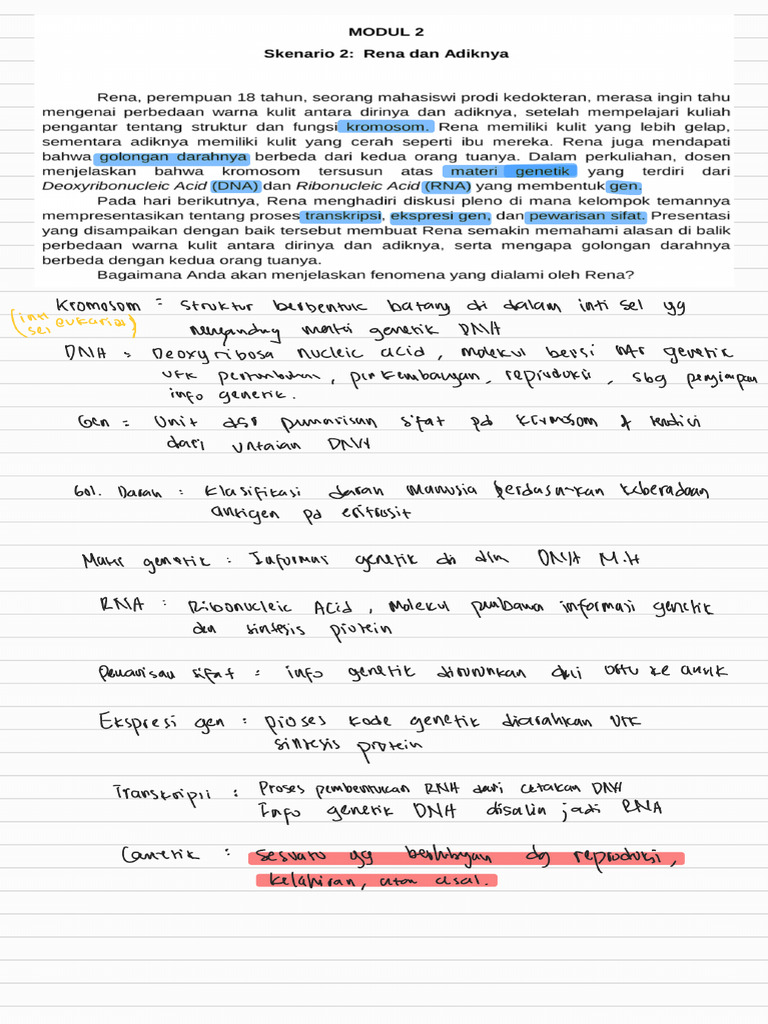 MODUL 2
Skenario 2: Rena dan Adiknya
Rena, perempuan 18 tahun, seorang mahasiswi prodi kedokteran, merasa ingin tahu
mengenai perbedaan warna kulit antara dirinya dan adiknya, setelah mempelajari kuliah
pengantar tentang struktur dan fungsi kromosom. Rena memiliki kulit yang lebih gelap,
sementara adiknya memiliki kulit yang cerah seperti ibu mereka. Rena juga mendapati
bahwa golongan darahnya berbeda dari kedua orang tuanya. Dalam perkuliahan, dosen
menjelaskan bahwa kromosom tersusun atas materi genetik yang terdiri dari
Deoxyribonucleic Acid (DNA) dan Ribonucleic Acid (RNA) yang membentuk gen.
Pada hari berikutnya, Rena menghadiri diskusi pleno di mana kelompok temannya
mempresentasikan tentang proses transkripsi, ekspresi gen, dan pewarisan sifat. Presentasi
yang disampaikan dengan baik tersebut membuat Rena semakin memahami alasan di balik
perbedaan warna kulit antara dirinya dan adiknya, serta mengapa golongan darahnya
berbeda dengan kedua orang tuanya.
Bagaimana Anda akan menjelaskan fenomena yang dialami oleh Rena?
Kromosom = struktur berbentuk batang di dalam inti sel yg
(inti sel eukariot)
mengandung materi genetik DNA
DNA = Deoxyribosa nucleic acid, molekul berisi mtr genetik
utk pertumbuhan, perkembangan, reproduksi, sbg penyimpan
info genetik.
Gen = Unit dsr pewarisan sifat pd kromosom & terdiri
dari untaian DNA
Gol. Darah : Klasifikasi darah manusia berdasarkan keberadaan
antigen pd eritrosit
Matr genetik : Informasi genetik di dlm DNA M.H
RNA : Ribonucleic Acid, molekul pembawa informasi genetik
dan sintesis protein
Pewarisan sifat = info genetik diturunkan dari ortu ke anak
Ekspresi gen : proses kode genetik diarahkan utk
sintesis protein
Transkripsi : Proses pembentukan RNA dari cetakan DNA
Info genetik DNA disalin jadi RNA
Genetik : sesuatu yg berhubgan dg reproduksi,
kelahiran, atau asal.